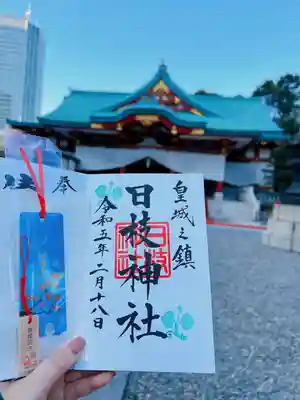 皇城之鎮
奉
日枝神社
令和五年二月十八日